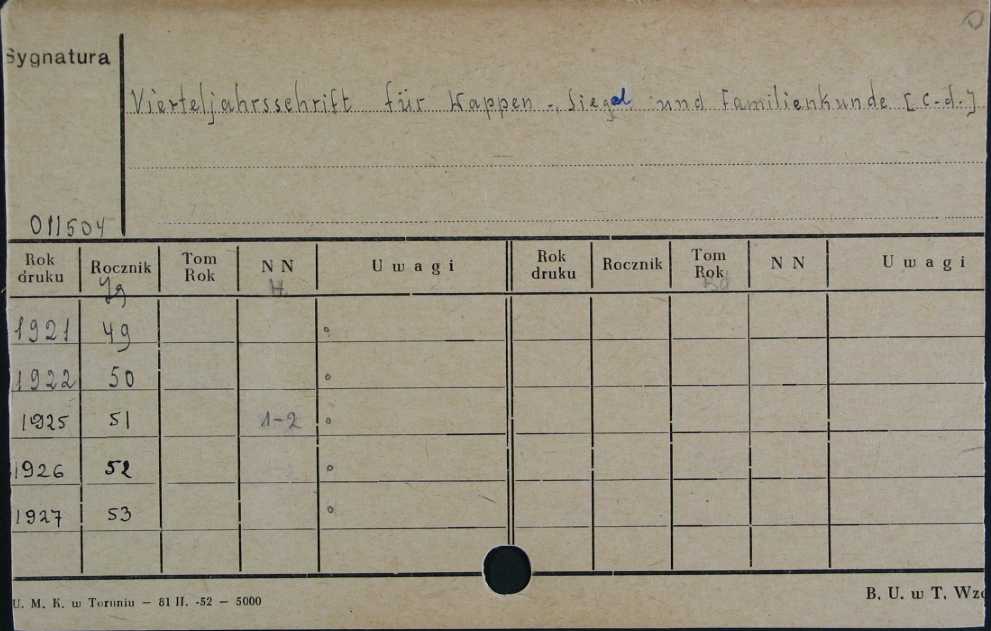 Sygnatura
Vierteljahrsschrift für Wappen -, Siegel und Familienkunde [c-d.]
011504
Rok druku Rocznik Tom Rok N N Uwagi Rok druku Rocznik Tom Rok N N Uwagi
Jg H. Bd
1921 49
1922 50
1925 51 1-2
1926 52
1927 53
U. M. K. w Toruniu — 81 II. -52 — 5000 B. U. w T.